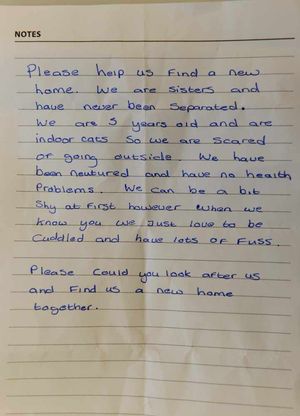 NOTES
Please help us Find a new
home. We are sisters and
have never been separated.
We are 5 years old and are
indoor cats so we are scared
of going outside. We have
been neutured and have no health
Problems. We can be a bit
Shy at First however when we
know you we Just love to be
Cuddled and have lots of Fuss.
Please could you look after us
and Find us a new home
together.